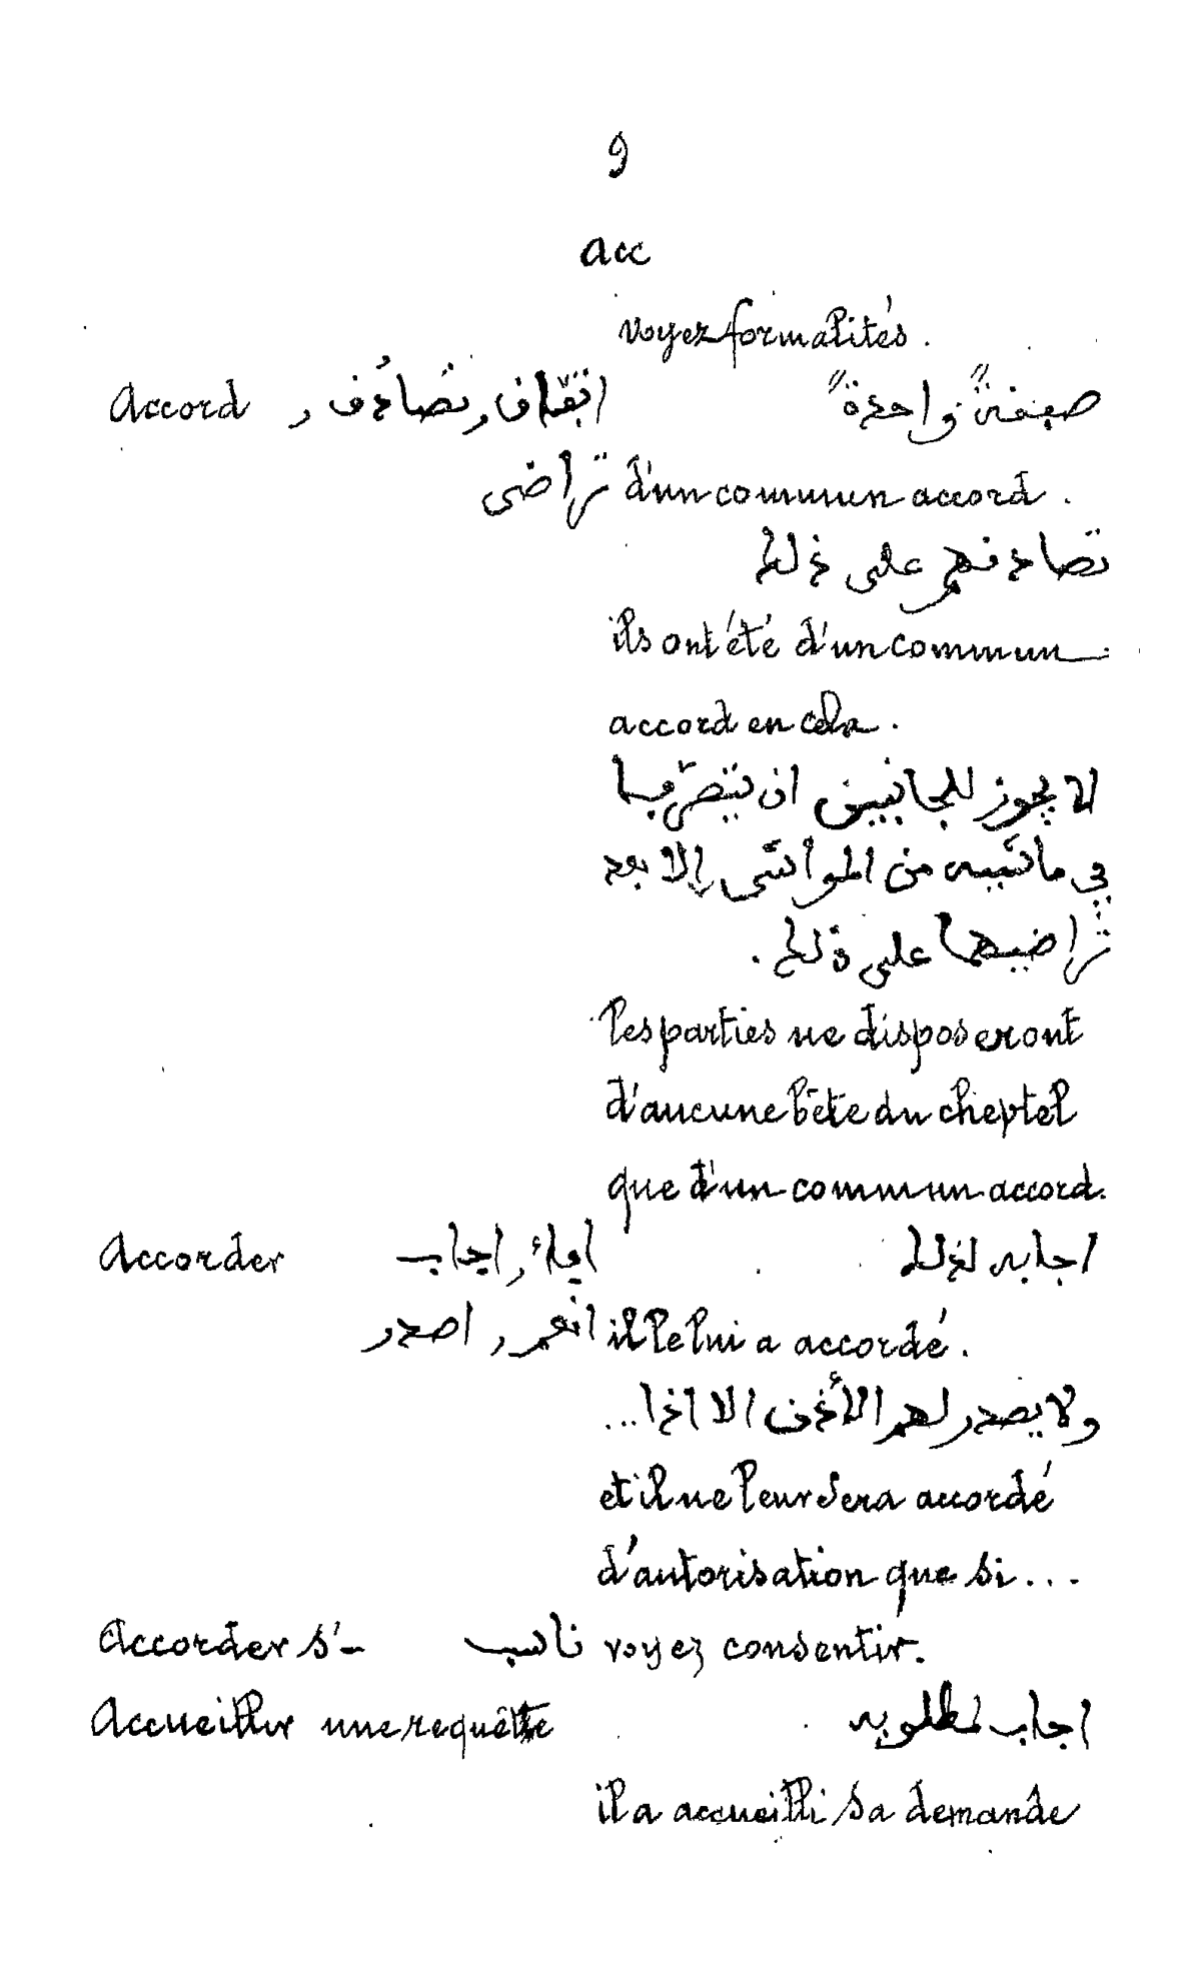 9
acc
voyez formalités.
Accord اتفاق, تصادف, صفقة واحدة
تراضى d'un commun accord.
تصادفهم على ذلك
ils ont été d'un commun
accord en cela.
لا يجوز للجانبين ان يتصرفا
في ما من المواشى إلا بعد
تراضيهما على ذلك.
les parties ne disposeront
d'aucune bête du cheptel
que d'un commun accord.
Accorder ايجاب اجابه لذلك
انعم, اصدر il le lui a accordé.
ولا يصدر لهم الأذن الا اذا...
et il ne leur sera accordé
d'autorisation que si...
Accorder s'- ناسب voyez consentir.
Accueillir une requête اجاب لمطلوبه
il a accueilli sa demande